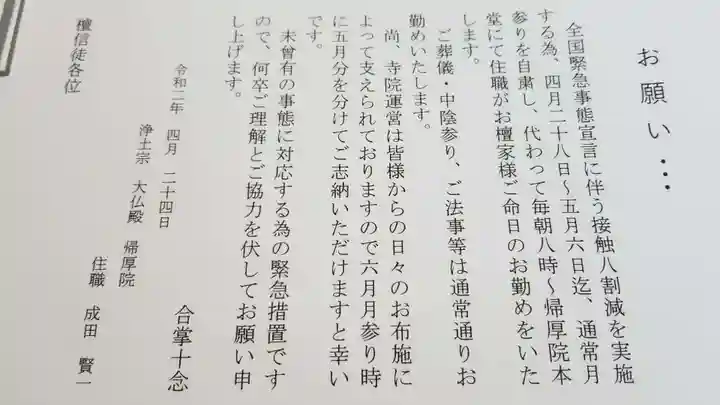 お願い…
全国緊急事態宣言に伴う接触八割減を実施
する為、四月二十八日～五月六日迄、通常月
参りを自粛し、代わって毎朝八時～帰厚院本
堂にて住職がお檀家様ご命日のお勤めをいた
します。
ご葬儀・中陰参り、ご法事等は通常通りお
勤めいたします。
尚、寺院運営は皆様からの日々のお布施に
よって支えられておりますので六月月参り時
に五月分を分けてご志納いただけますと幸い
です。
未曾有の事態に対応する為の緊急措置です
ので、何卒ご理解とご協力を伏してお願い申
し上げます。
合掌十念
令和二年 四月 二十四日
浄土宗 大仏殿 帰厚院
住職 成田 賢一
檀信徒各位